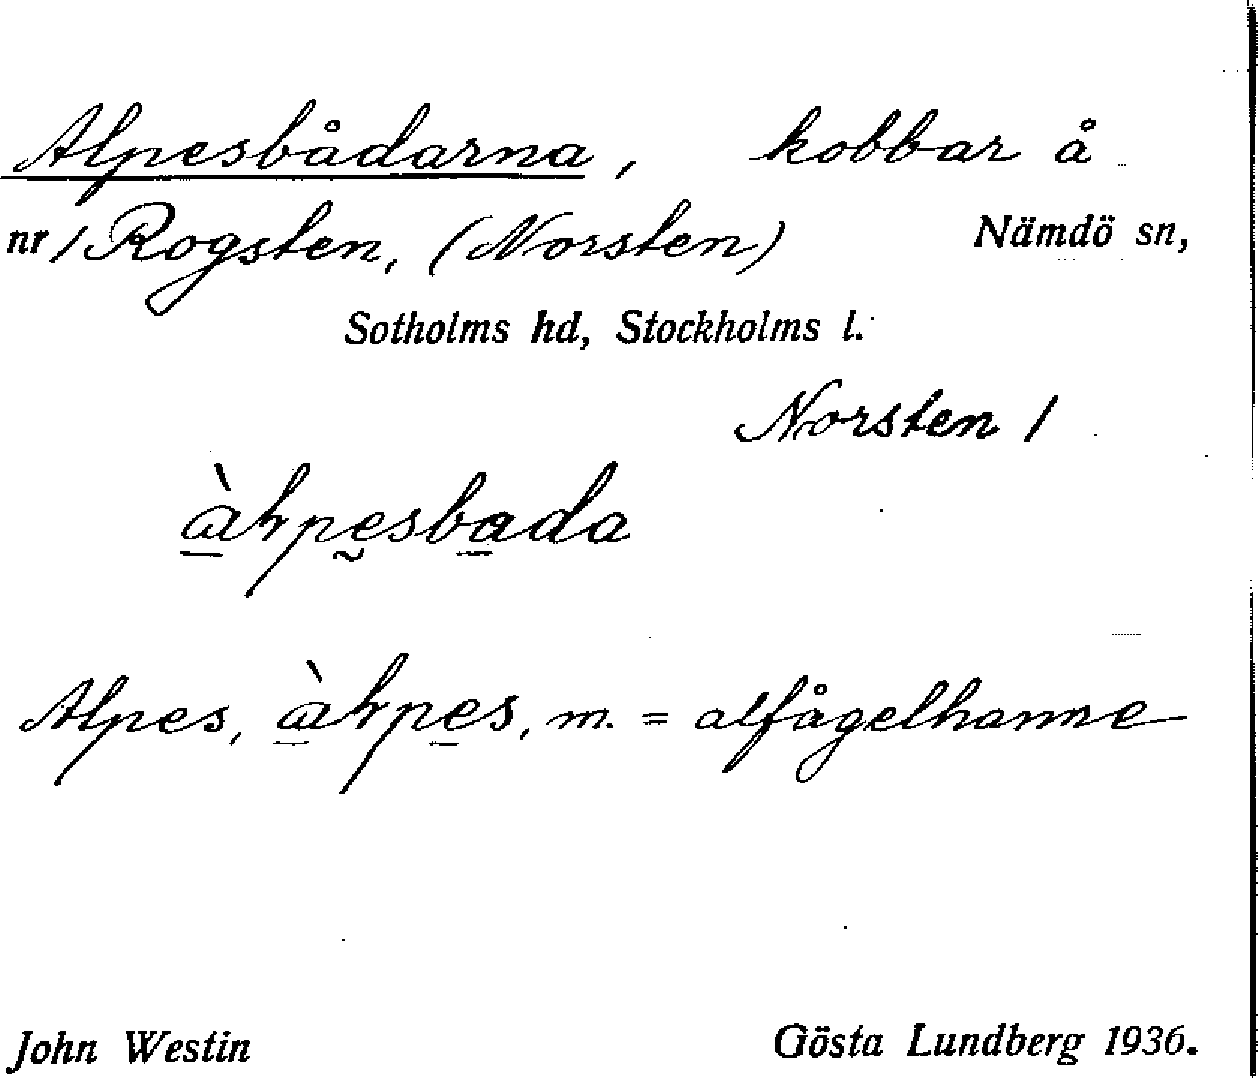 Alpesbådarna, kobbar å
nr 1 Rogsten, (Norsten) Nämdö sn,
Sotholms hd, Stockholms l.
Norsten 1
Alpes, m. = alfågelhanne
John Westin Gösta Lundberg 1936.